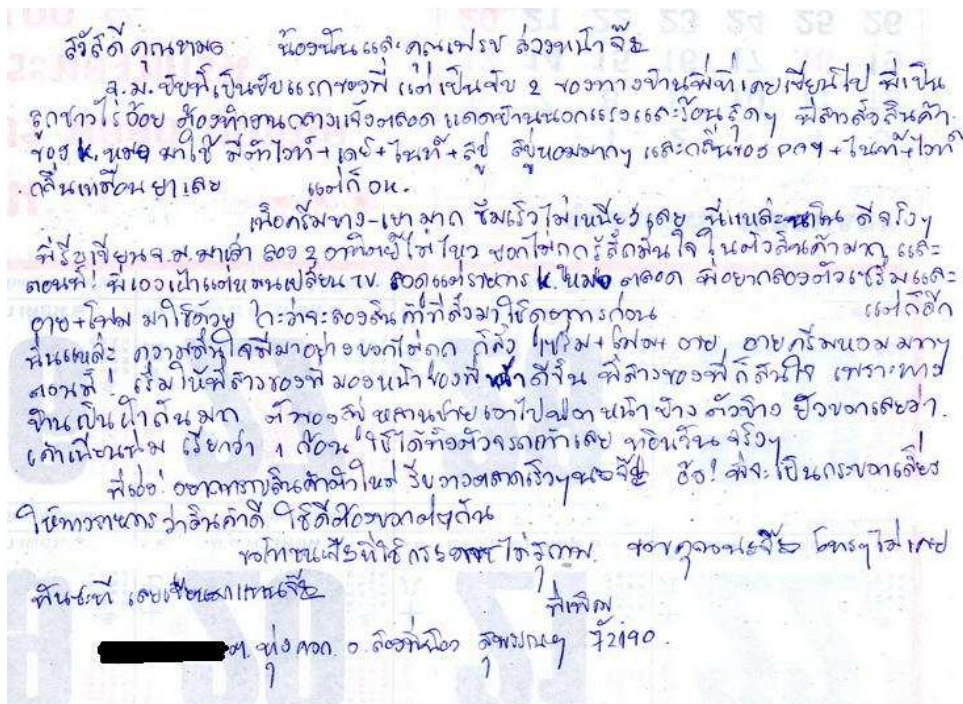 สวัสดี คุณหมอ น้องนัน และ คุณเฟรช ล่วงหน้า จ๊ะ
จ.ม. ฉบับนี้เป็นฉบับแรกของพี่ แต่เป็นฉบับ 2 ของทางบ้านพี่ที่เคยเขียนไป พี่เป็น
ลูกชาวไร่อ้อย ต้องทำงานกลางแจ้งตลอด แดดบ้านนอกแรงและร้อนสุดๆ พี่สาวสั่งสินค้า
ของ K. หมอ มาใช้ มีตัวไวท์ + เดย์ + ไนท์ + สบู่ สบู่หอมมากๆ และกลิ่นของ + ไนท์ + ไวท์
กลิ่นเหมือนยาเลย แต่ก็ อห.
เนื้อครีมบาง-เบามาก ซึมเร็วไม่เหนียวเลย นี่แหละ ดีจริงๆ
พี่รีบเขียน จ.ม. มาเล่า ลอง 2 อาทิตย์ไม่ไหว บอกไม่ถูกรู้สึกมั่นใจ ในตัวสินค้ามาก และ
ตอนนี้! พี่เองเฝ้าแต่หมุนเปลี่ยน TV. รายการ K. หมอ ตลอด พี่อยากลองตัวเซรั่มและ
อาย + โฟม มาใช้ด้วย กะว่าจะลองสินค้าที่สั่งมาใช้ดูอาการก่อน แต่ก็อีก
นั่นแหละ ความมั่นใจมีมาอย่างบอกไม่ถูก ก็สั่ง เซรั่ม + โฟม + อาย อายครีมหอมมากๆ
ตอนนี้! เริ่มให้พี่สาวของพี่มองหน้าของพี่ หน้าดีขึ้น พี่สาวของพี่ก็สนใจ เพราะทาง
บ้านเป็นฝ้ากันมาก ตัวของสบู่หลานชายเอาไปฟอกหน้าบ้าง ตัวบ้าง ยังบอกเลยว่า
เค้าเนียนนุ่ม เรียกว่า 1 ก้อน ใช้ได้ทั้งตัวจรดเท้าเลย จริงๆ
พี่เอ๋อ! อยากทราบสินค้าตัวใหม่ รีบวางตลาดเร็วๆนะจ๊ะ อ้อ! พี่จะเป็นกระบอกเสียง
ให้ทางรายการว่าสินค้าดี ใช้ดีต้องบอกต่อๆกัน
ขอโทษนะจ๊ะที่ใช้กระดาษไม่สุภาพ ขอบคุณนะจ๊ะ โทรๆไม่เคย
ทันซะที เลยเขียนมาแทนจ๊ะ
พี่เพ็ญ
ต. ทุ่งคอก อ. สองพี่น้อง สุพรรณฯ 72190.